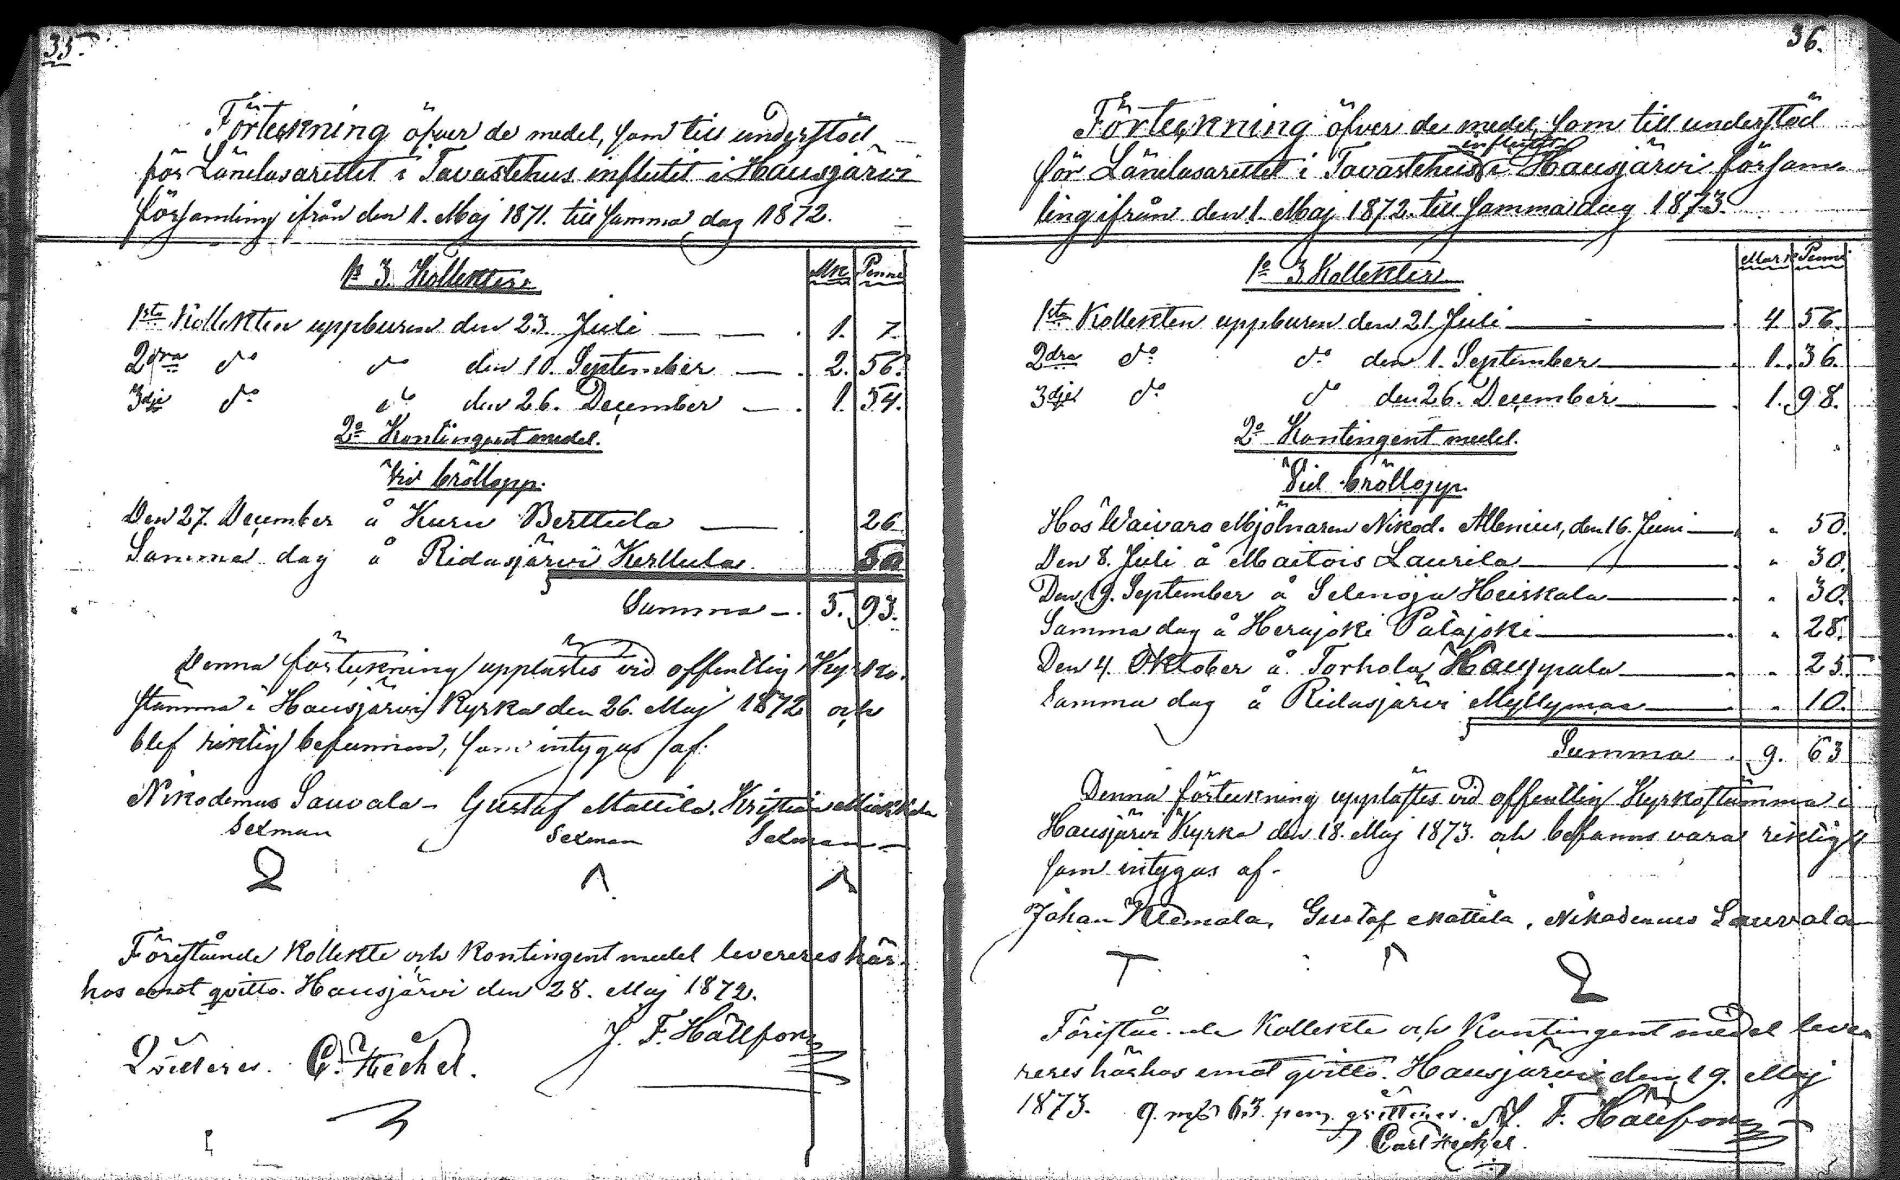 35.
Förteckning öfver de medel, som till understöd
för Länelasarettet i Tavastehus influtit i Hausjärvi
församling ifrån den 1. Maj 1871. till samma dag 1872.
1o 3. Kollekter.
Mk Penni
1sta Kollekten uppburen den 23. Juli 1. 7.
2dra do do den 10. September 2. 56.
3dje do do den 26. December 1. 54.
2o Kontingent medel.
Vid bröllopp.
Den 27. December å Kuru Berttula 26
Samma dag å Ridasjärvi Kerttula 50
Summa 5. 93.
Denna förteckning upplästes vid offentlig Kyrko-
stämma i Hausjärvi Kyrka den 26. Maj 1872 och
blef riktig befunnen, som intygas af.
Nikodemus Sauvala Gustaf Mattila. Kristian
Sexman Sexman Sexman
Förestående Kollekte och Kontingent medel levereres här-
hos emot qvitto. Hausjärvi den 28. Maj 1872.
J. F. Hällfors
Qvitteres. C. Heckel.
36.
Förteckning öfver de medel, som till understöd
för Länelasarettet i Tavastehus influtit i Hausjärvi försam-
ling ifrån den 1. Maj 1872. till samma dag 1873.
1o 3 Kollekter
Mark Penni
1sta Kollekten uppburen den 21. Juli 4 56.
2dra do do den 1. September 1. 36.
3dje do do den 26. December 1. 98.
2o Kontingent medel.
Vid bröllopp.
Hos Waivaro Mjölnaren Nikod. Alenius, den 16. Juni " 50.
Den 8. Juli å Maitois Laurila " 30.
Den 19. September å Selenoja Heiskala " 30.
Samma dag å Herajoki Patajoki " 28.
Den 4. Oktober å Torhola Haugpala " 25
Samma dag å Ridasjärvi Myllymaa " 10.
Summa 9. 63
Denna förteckning upplästes vid offentlig Kyrkostämma i
Hausjärvi Kyrka den 18. Maj 1873. och befanns vara riktigt
som intygas af.
Johan Klemola, Gustaf Mattila, Nikodemus Sauvala
Förestående Kollekte och Kontingent medel leve-
reres härhos emot qvitto. Hausjärvi den 19. Maj
1873. J. F. Hällfors
9. mk 63 penni qvitteres.
Carl Heckel.